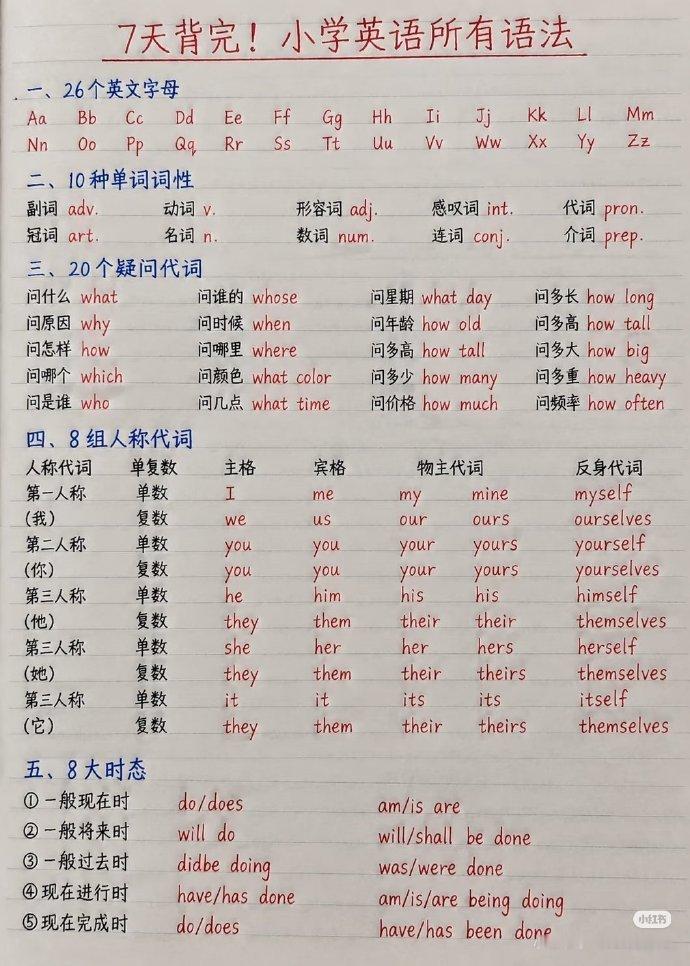 7天背完！小学英语所有语法
一、26个英文字母
Aa Bb Cc Dd Ee Ff Gg Hh Ii Jj Kk Ll Mm
Nn Oo Pp Qq Rr Ss Tt Uu Vv Ww Xx Yy Zz
二、10种单词词性
副词 adv. 动词 v. 形容词 adj. 感叹词 int. 代词 pron.
冠词 art. 名词 n. 数词 num. 连词 conj. 介词 prep.
三、20个疑问代词
问什么 what 问谁的 whose 问星期 what day 问多长 how long
问原因 why 问时候 when 问年龄 how old 问多高 how tall
问怎样 how 问哪里 where 问多高 how tall 问多大 how big
问哪个 which 问颜色 what color 问多少 how many 问多重 how heavy
问是谁 who 问几点 what time 问价格 how much 问频率 how often
四、8组人称代词
人称代词 单复数 主格 宾格 物主代词 反身代词
第一人称 单数 I me my mine myself
(我) 复数 we us our ours ourselves
第二人称 单数 you you your yours yourself
(你) 复数 you you your yours yourselves
第三人称 单数 he him his his himself
(他) 复数 they them their their themselves
第三人称 单数 she her her hers herself
(她) 复数 they them their theirs themselves
第三人称 单数 it it its its itself
(它) 复数 they them their theirs themselves
五、8大时态
①一般现在时 do/does am/is are
②一般将来时 will do will/shall be done
③一般过去时 didbe doing was/were done
④现在进行时 have/has done am/is/are being doing
⑤现在完成时 do/does have/has been done
小红书